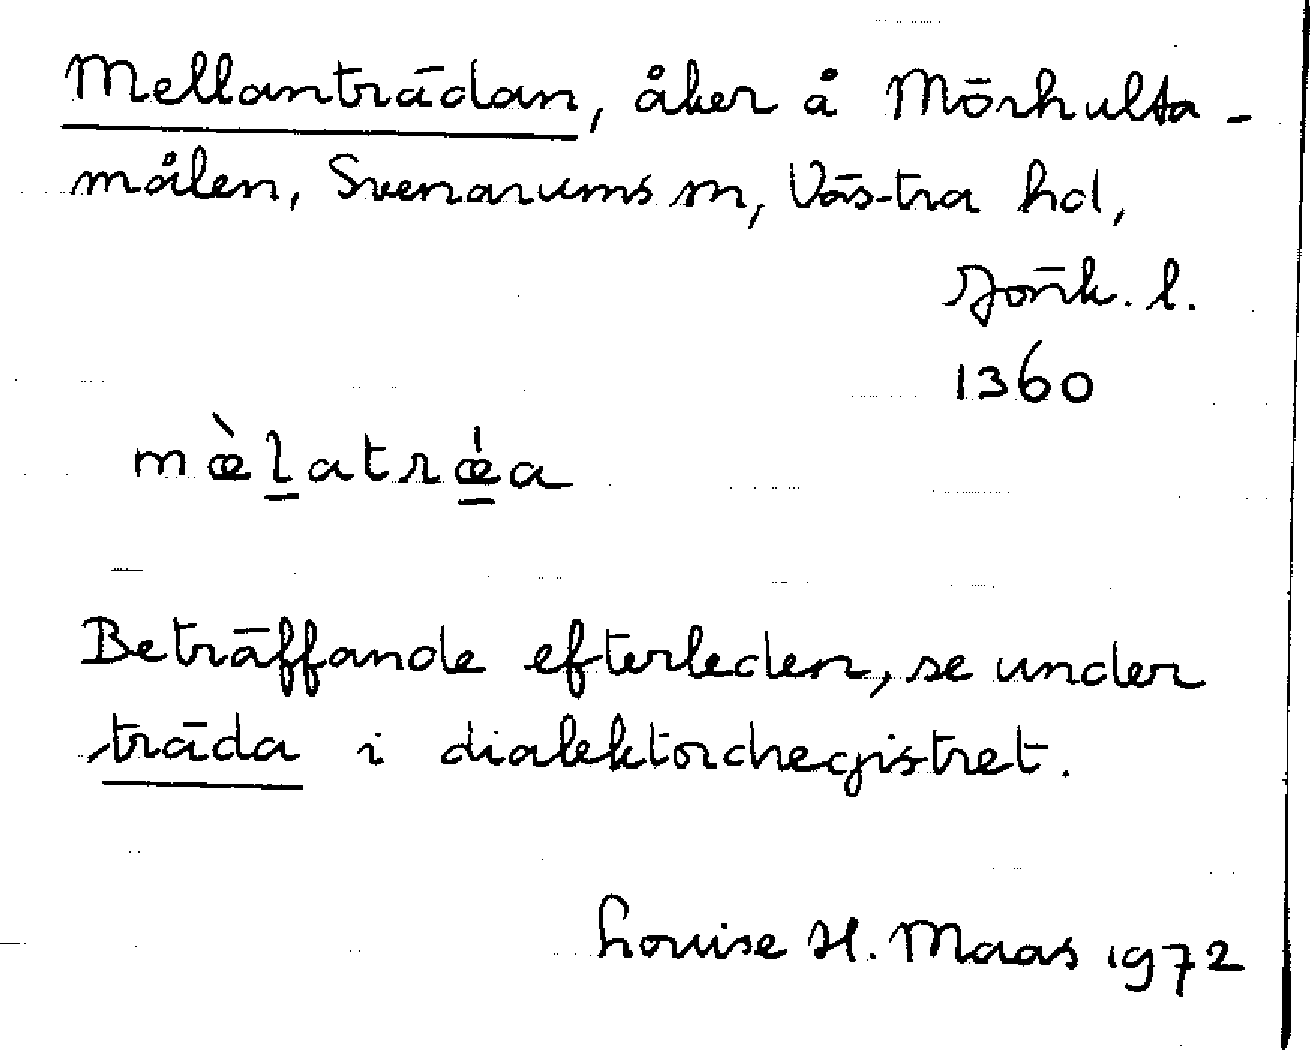 Mellanträdan, åker å Mörhulta-
målen, Svenarums sn, Västra hd,
Jönk. l.
1360
mæ̀l̲atrǽ̲a
Beträffande efterleden, se under
träda i dialektordregistret.
Louise H. Maas 1972